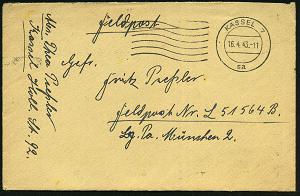 Feldpost
KASSEL 7
16.4.43.-11
sa
Gefr.
Fritz Preßler
Feldpost Nr. L 51564 B.
Lg. Pa. München 2.
Preßler
Kassel St. 92.